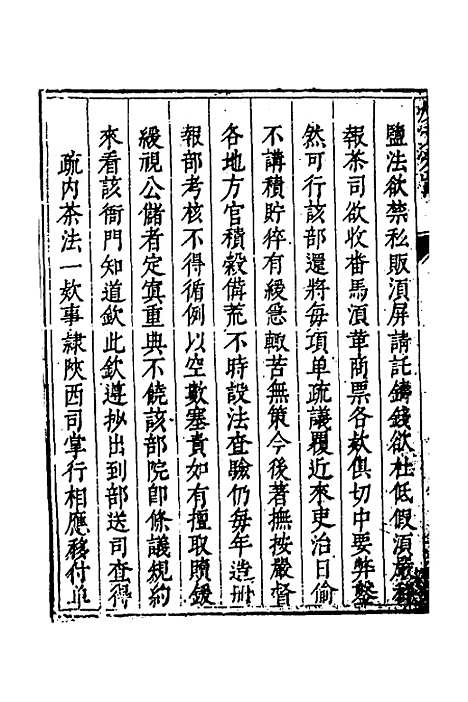 鹽法欲禁私販湏屏請託鑄錢欲杜低假湏嚴
報茶司欲收畨馬湏革商票各欵俱切中要弊鑿
然可行該部還將每項单疏議覆近來吏治日偷
不講積貯猝有緩急輙苦無策今後著撫按嚴督
各地方官積糓俻荒不時設法查驗仍每年造冊
報部考核不得循例以空數塞責如有擅取贖鍰
緩視公儲者定寘重典不饒該部院即條議規約
來看該衙門知道欽此欽遵抄出到部送司查得
疏内茶法一欵事隸陜西司掌行相應移付